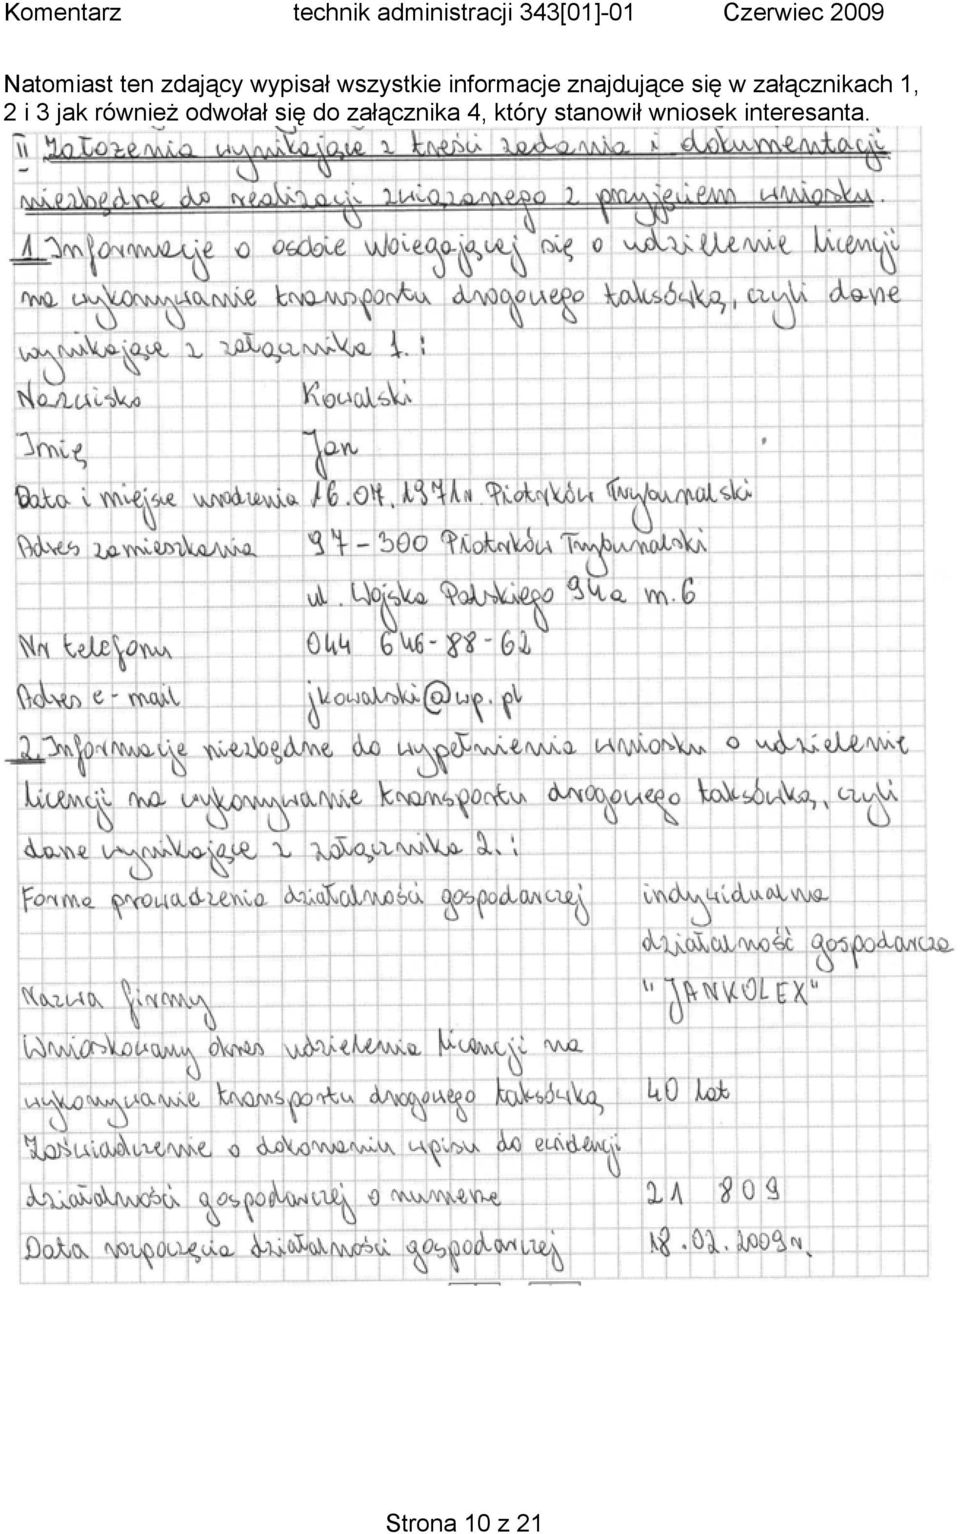 Komentarz technik administracji 343[01]-01 Czerwiec 2009
Natomiast ten zdający wypisał wszystkie informacje znajdujące się w załącznikach 1,
2 i 3 jak również odwołał się do załącznika 4, który stanowił wniosek interesanta.
II Założenia wynikające z treści zadania i dokumentacji
niezbędne do realizacji związanego z przyjęciem wniosku.
1. Informacje o osobie ubiegającej się o udzielenie licencji
na wykonywanie transportu drogowego taksówką, czyli dane
wynikające z załącznika 1. :
Nazwisko Kowalski
Imię Jan
Data i miejsce urodzenia 16.07.1971r. Piotrków Trybunalski
Adres zamieszkania 97-300 Piotrków Trybunalski
ul. Wojska Polskiego 94a m. 6
Nr telefonu 044 646-88-62
Adres e-mail jkowalski@wp.pl
2. Informacje niezbędne do wypełnienia wniosku o udzielenie
licencji na wykonywanie transportu drogowego taksówką, czyli
dane wynikające z załącznika 2. :
Forma prowadzenia działalności gospodarczej indywidualna
działalność gospodarcza
Nazwa firmy "JANKOLEX"
Wnioskowany okres udzielenia licencji na
wykonywanie transportu drogowego taksówką 40 lat
Zaświadczenie o dokonaniu wpisu do ewidencji
działalności gospodarczej o numerze 21 809
Data rozpoczęcia działalności gospodarczej 18.02.2009r.
Strona 10 z 21